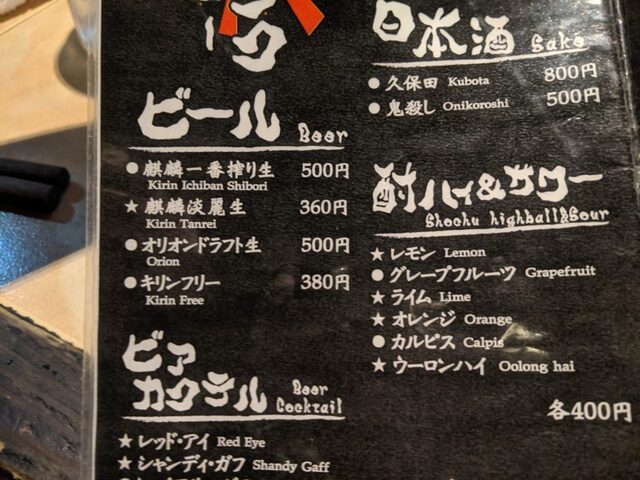 ビール Beer
● 麒麟一番搾り生 500円
Kirin Ichiban Shibori
★ 麒麟淡麗生 360円
Kirin Tanrei
● オリオンドラフト生 500円
Orion
● キリンフリー 380円
Kirin Free
ビア
カクテル Beer Cocktail
★ レッド・アイ Red Eye
★ シャンディ・ガフ Shandy Gaff
日本酒 Sake
● 久保田 Kubota 800円
● 鬼殺し Onikoroshi 500円
酎ハイ&サワー
Shochu highball&Sour
★ レモン Lemon
● グレープフルーツ Grapefruit
★ ライム Lime
★ オレンジ Orange
● カルピス Calpis
★ ウーロンハイ Oolong hai
各400円